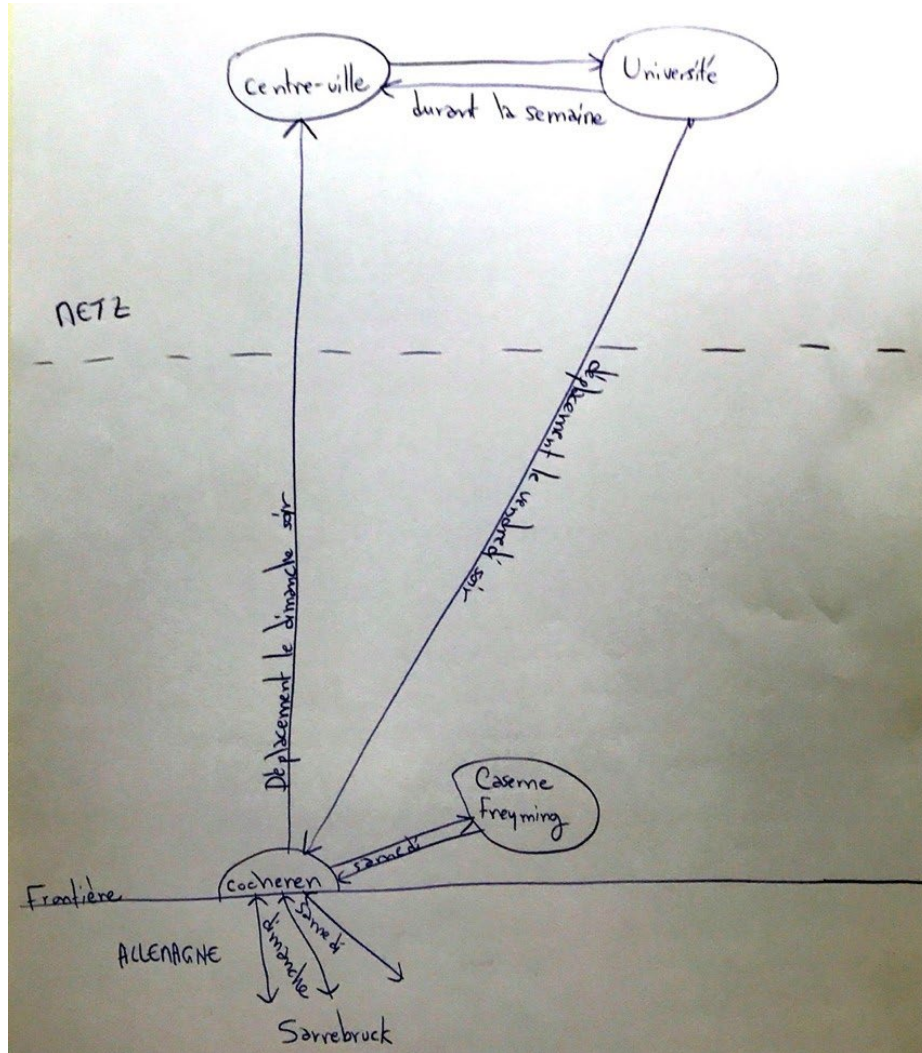 Centre-ville
Université
durant la semaine
METZ
déplacement le vendredi soir
Déplacement le dimanche soir
Caserne
Freyming
samedi
Cocheren
Frontière
samedi
dimanche
ALLEMAGNE
Sarrebruck